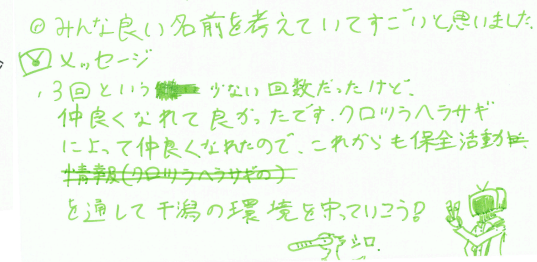 ◎みんな良い名前を考えていてすごいと思いました。
メッセージ
・3回という少ない回数だったけど、
仲良くなれて良かったです。クロツラヘラサギ
によって仲良くなれたので、これからも保全活動
情報(クロツラヘラサギの)
を通して干潟の環境を守っていこう!
シロ.